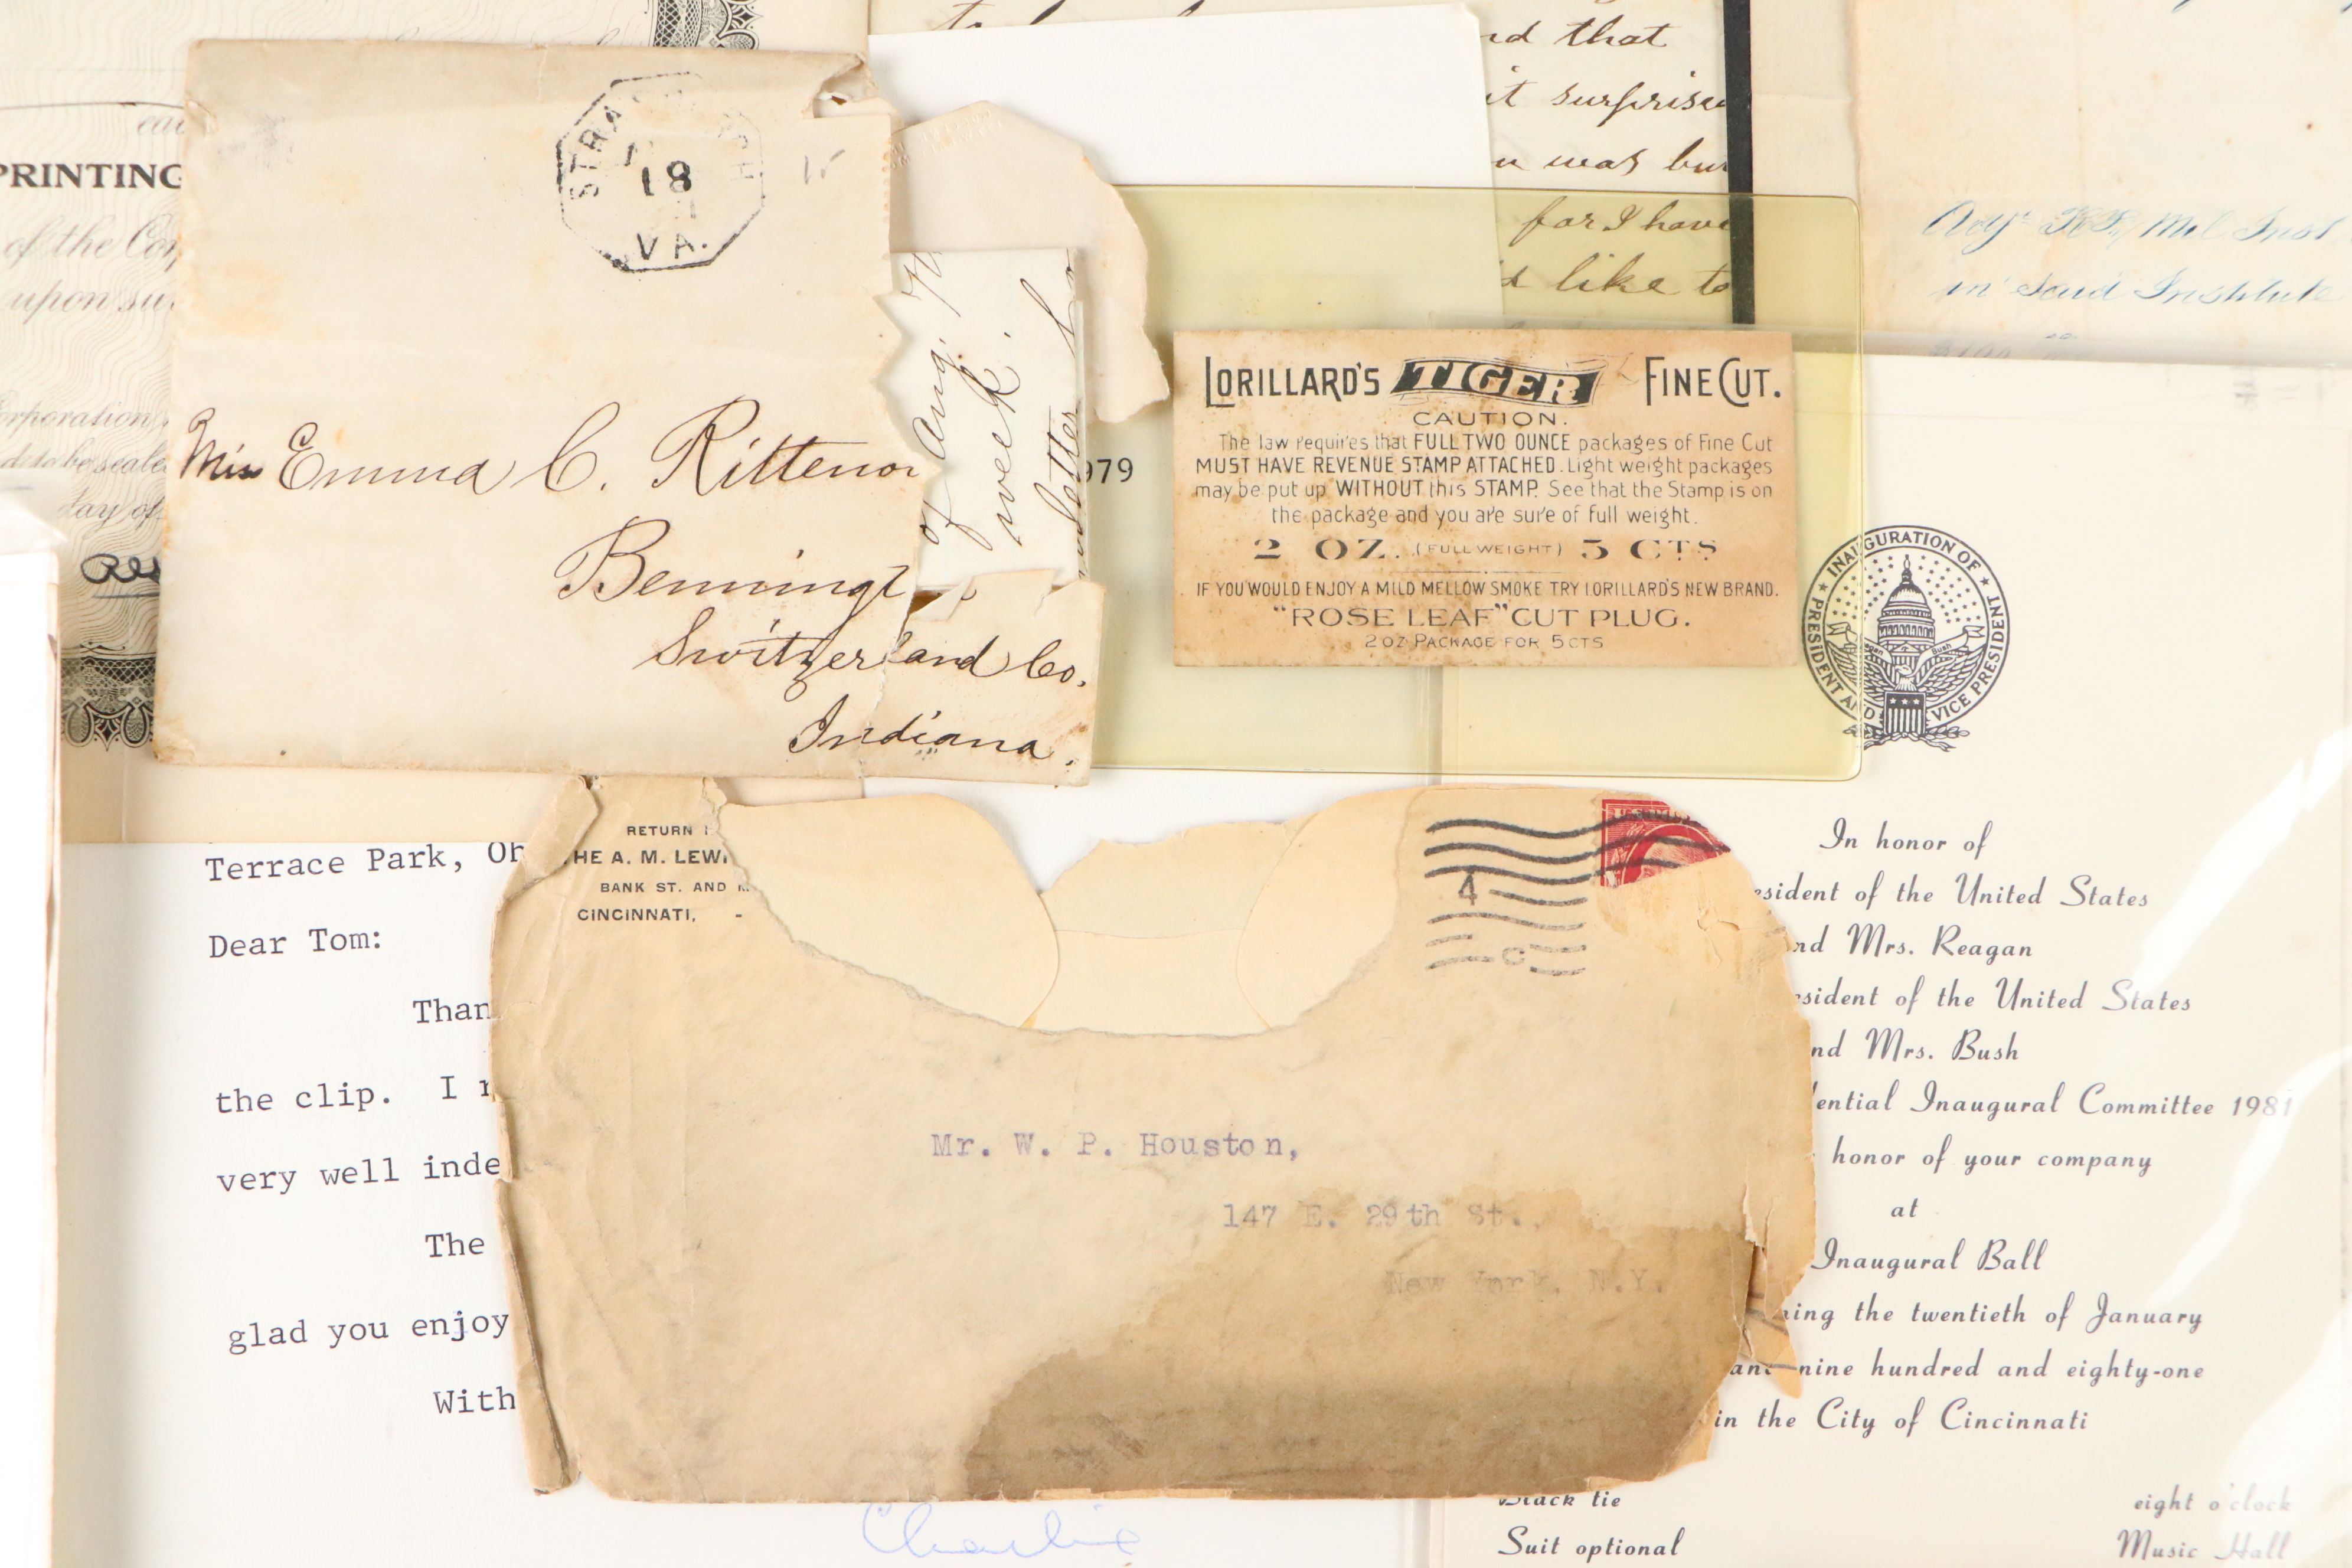 PRINTING
of the
upon
Corporation
day of
STRA
18
VA.
Miss Emma C. Rittenou
Benningt
Switzerland Co.
Indiana.
of Aug.
week.
letter
nd that
it surprise
u was bu
for I have
d like to
Mil Inst
in Said Institute
979
LORILLARD'S TIGER FINE CUT.
CAUTION.
The law requires that FULL TWO OUNCE packages of Fine Cut
MUST HAVE REVENUE STAMP ATTACHED. Light weight packages
may be put up WITHOUT this STAMP. See that the Stamp is on
the package and you are sure of full weight.
2 OZ. (FULL WEIGHT) 5 CTS
IF YOU WOULD ENJOY A MILD MELLOW SMOKE TRY LORILLARD'S NEW BRAND.
"ROSE LEAF" CUT PLUG.
2 OZ PACKAGE FOR 5 CTS
INAUGURATION OF
PRESIDENT AND VICE PRESIDENT
Bush
In honor of
esident of the United States
nd Mrs. Reagan
esident of the United States
nd Mrs. Bush
dential Inaugural Committee 1981
honor of your company
at
Inaugural Ball
ning the twentieth of January
and nine hundred and eighty-one
in the City of Cincinnati
Black tie
Suit optional
eight o'clock
Music Hall
RETURN
THE A. M. LEWI
BANK ST. AND
CINCINNATI, -
4
C
Mr. W. P. Houston,
147 E. 29th St.,
New York, N.Y.
Terrace Park, Oh
Dear Tom:
Than
the clip. I r
very well inde
The
glad you enjoy
With
Charlie